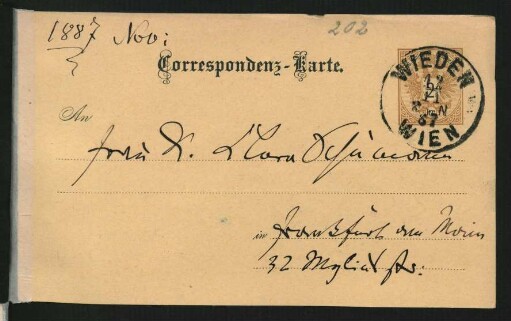 1887 Nov:
202
Correspondenz-Karte.
WIEDEN
WIEN
An
Frau Clara Schumann
in Frankfurt am Main
32 Mylius str.